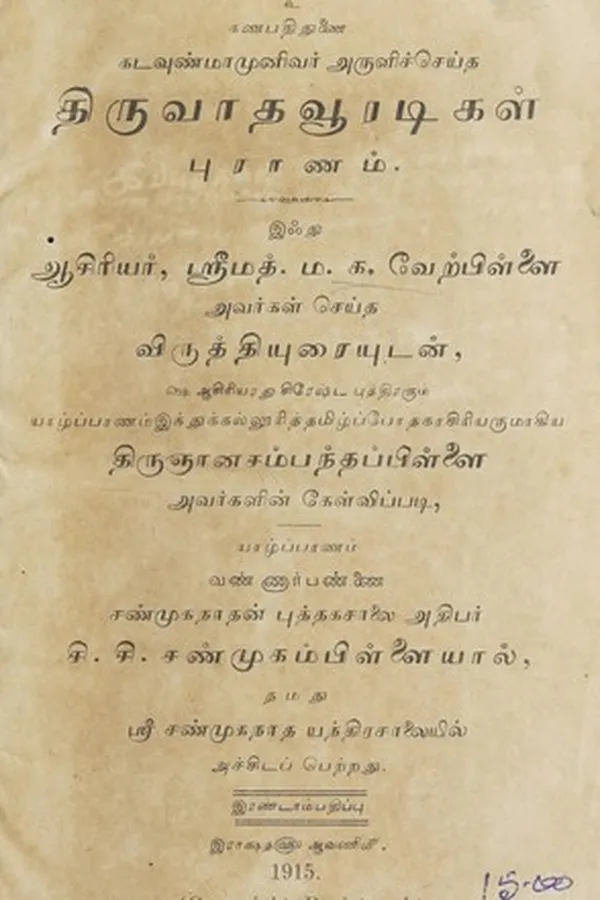 உ
கணபதிதுணை
கடவுண்மாமுனிவர் அருளிச்செய்த
திருவாதவூரடிகள்
புராணம்.
இஃது
ஆசிரியர், ஸ்ரீமத். ம. க. வேற்பிள்ளை
அவர்கள் செய்த
விருத்தியுரையுடன்,
௸ ஆசிரியரது சிரேஷ்ட புத்திரரும்
யாழ்ப்பாணம்இந்துக்கல்லூரித்தமிழ்ப்போதகாசிரியருமாகிய
திருஞானசம்பந்தப்பிள்ளை
அவர்களின் கேள்விப்படி,
யாழ்ப்பாணம்
வண்ணார்பண்ணை
சண்முகநாதன் புத்தகசாலை அதிபர்
சி. சி. சண்முகம்பிள்ளையால்,
தமது
ஸ்ரீ சண்முகநாத யந்திரசாலையில்
அச்சிடப் பெற்றது.
இரண்டாம்பதிப்பு
இராக்ஷத௵ ஆவணி௴.
1915.
15-00